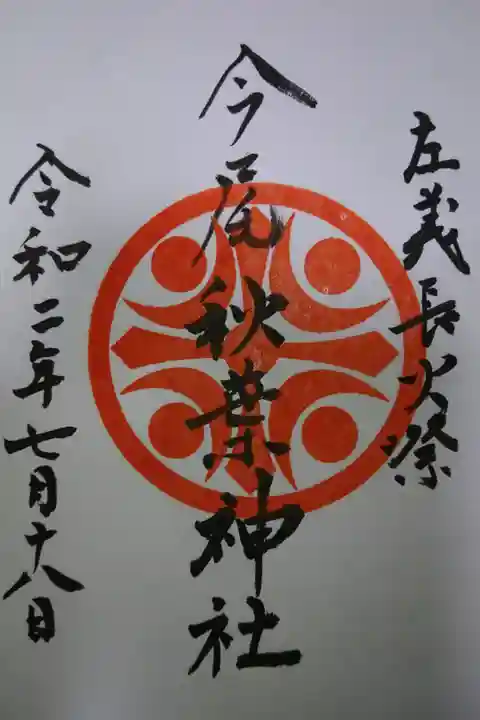 左義長火祭
今尾秋葉神社
令和二年七月十八日